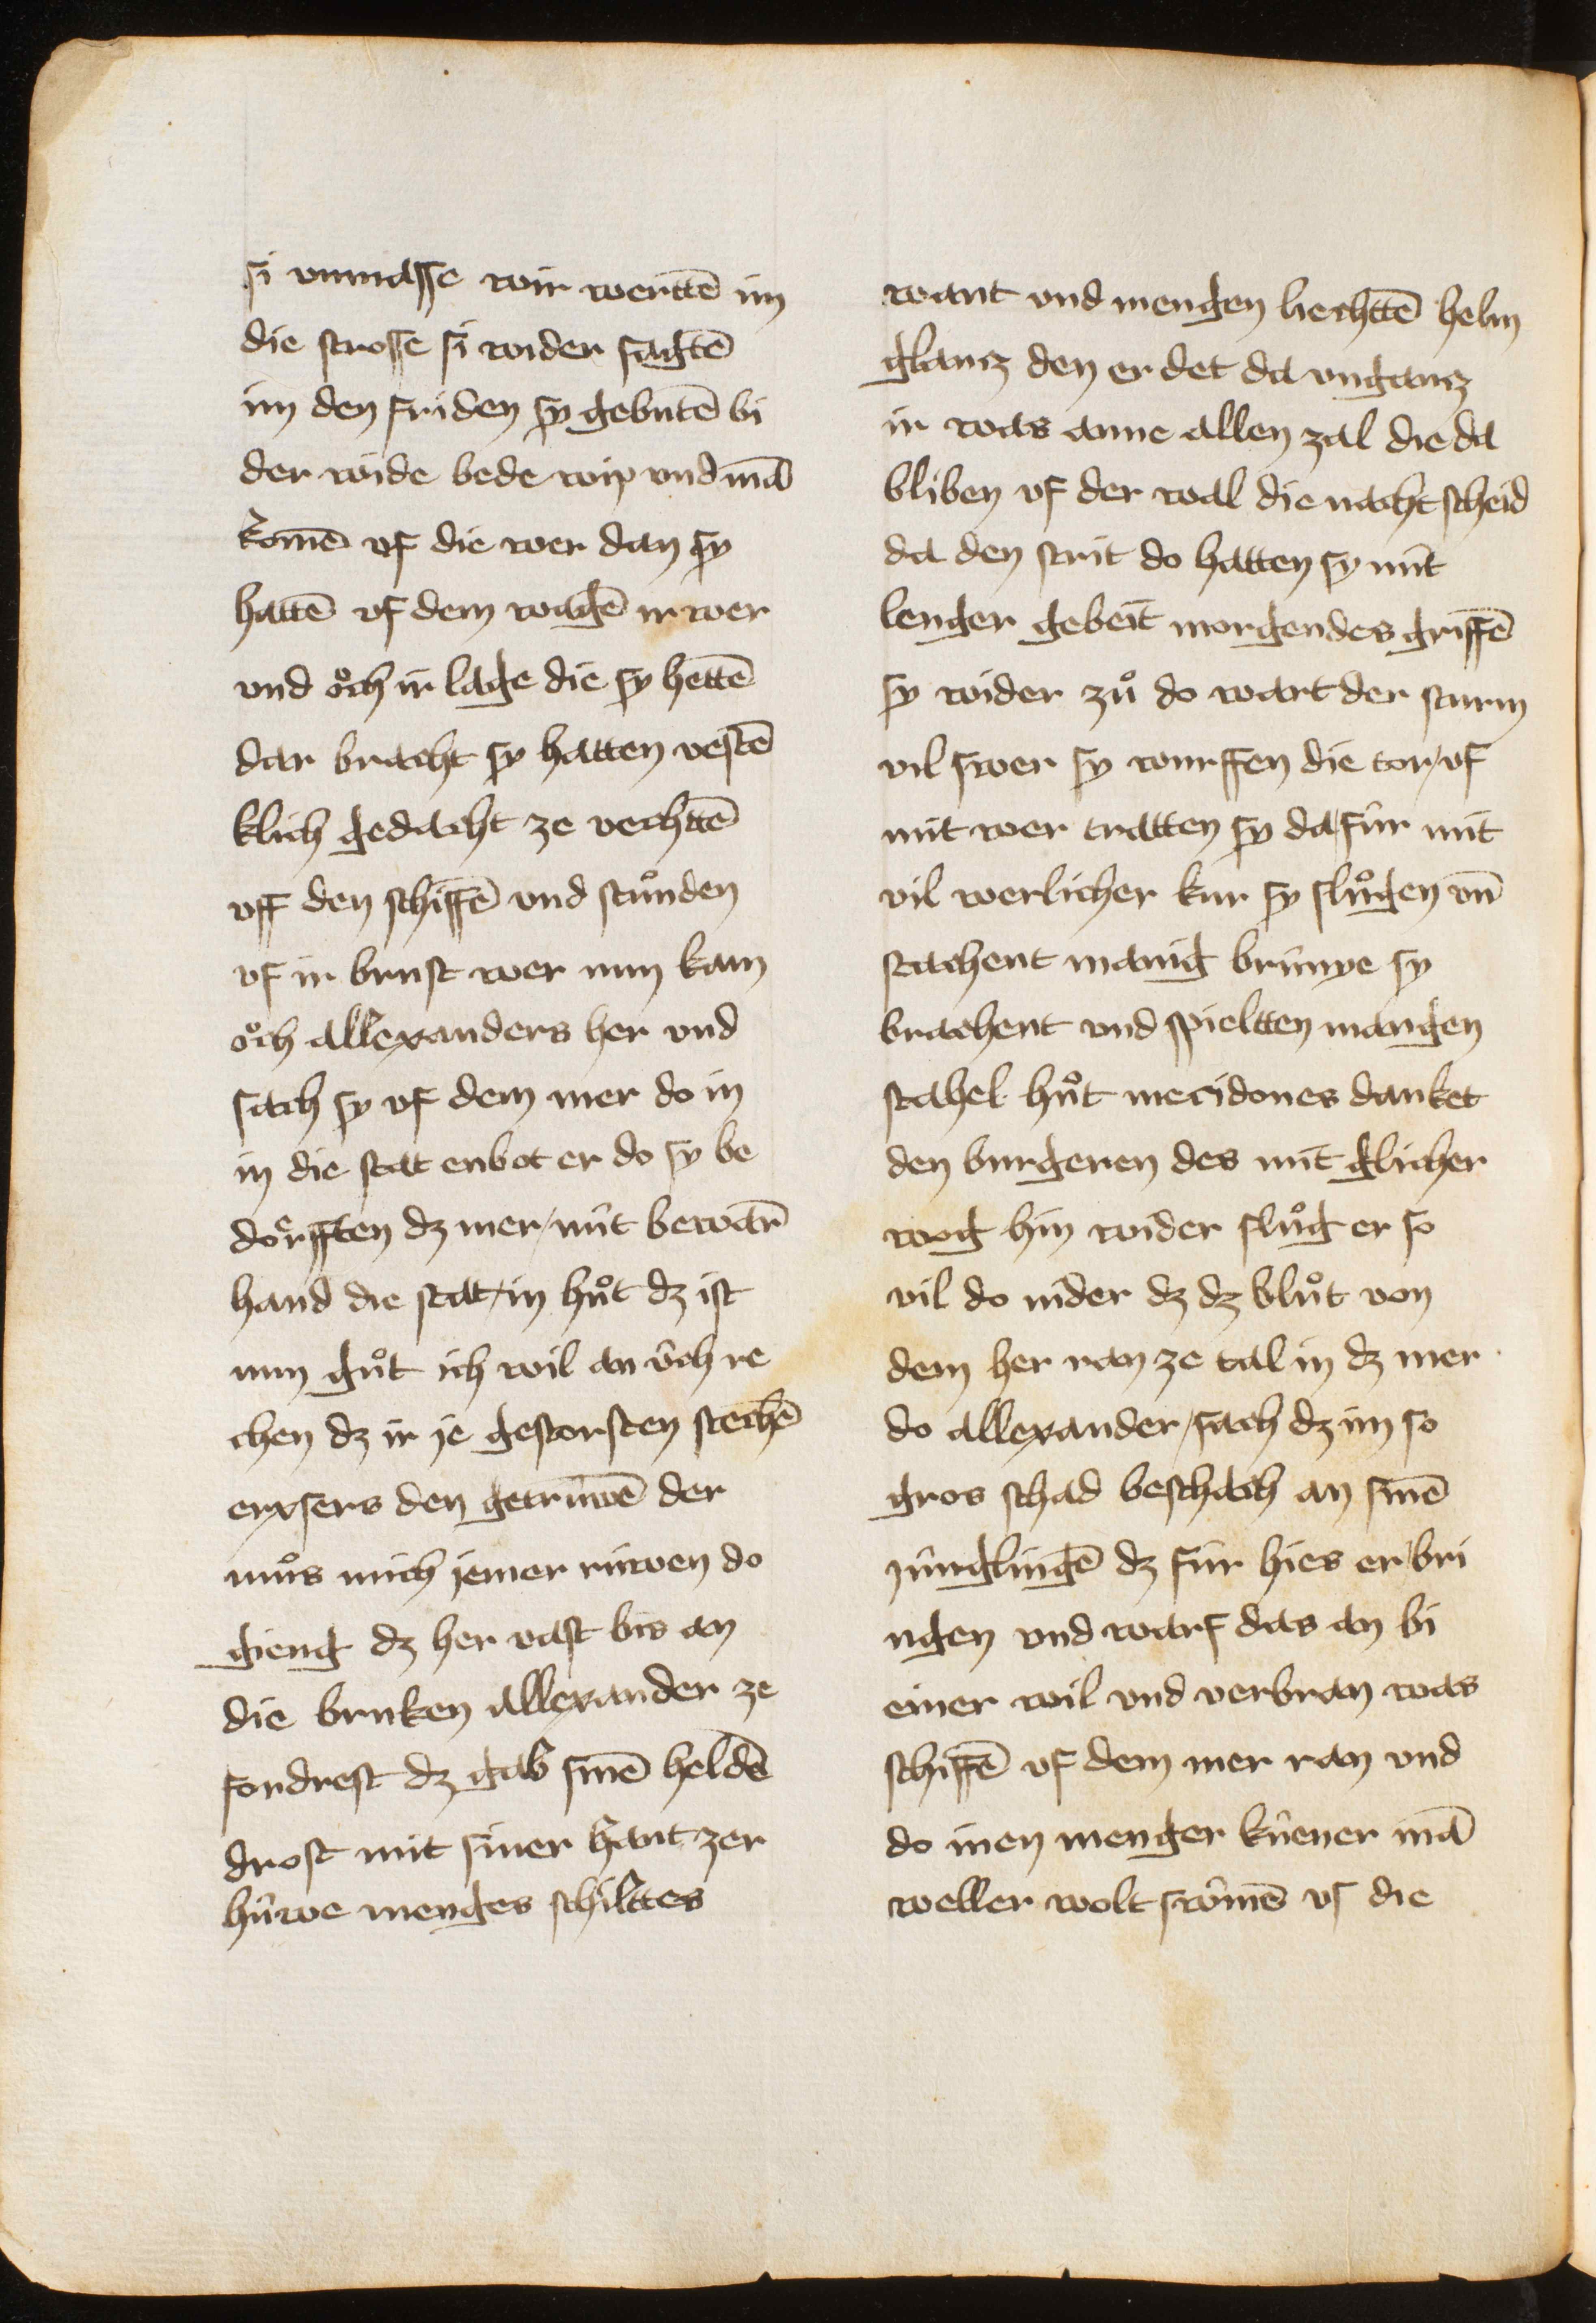 si vnmasse wir werttē im
die strosse si wider sagtē
im den friden sy gebutē bi
der wide bede wip vnd mā
komē vf die wer dan sy
hattē vf dem wagē ir wer
vnd oͮch ir lage die sy hettē
dar bracht sy hatten vestē
klich gedacht ze vechttē
vff den schiffē vnd stuͦnden
vf ir brust wer nun kam
oͮch allexanders her vnd
sach sy vf dem mer do in
in die stat enbot er do sy be
doͤrfften dz mer / nút bewarn̄
hand die stat / in huͦt dz ist
nun guͦt ich wil an v́ch re
chen dz ir je gestorsten stechē
erxsers den getrúwē der
muͦs mich jemer rúwen do
gieng dz her vast bis an
die bruken allexander ze
fondrest dz gab sinē heldē
drost mit siner hant zer
húwe menges schilttes
want vnd mengen liechttē helm
glancz den er det da vngancz
ir was anne allen zal die da
bliben vf der wal die nacht scheid
da den strit do hatten sy nút
lenger gebeit morgendes griffē
sy wider zuͦ do wart der sturm
vil swer sy wurffen die tor / vf
mit wer tratten sy da / fúr mit
vil werlicher kur sy sluͦgen vn̄
stachent manig brúnye sy
brachent vnd spieltten mangen
stahel huͦt mecidones danket
den burgeren des mit glicher
wog hin wider sluͦg er so
vil do nider dz dz bluͦt von
dem her ran ze tal in dz mer
do allexander / sach dz im so
gros schad beschach an sinē
júnglingē dz fúr hies er bri
ngen vnd warf das an bi
einer wil vnd verbran was
schiffē vf dem mer ran vnd
do inen menger kúener mā
weller wolt swúmē vs die